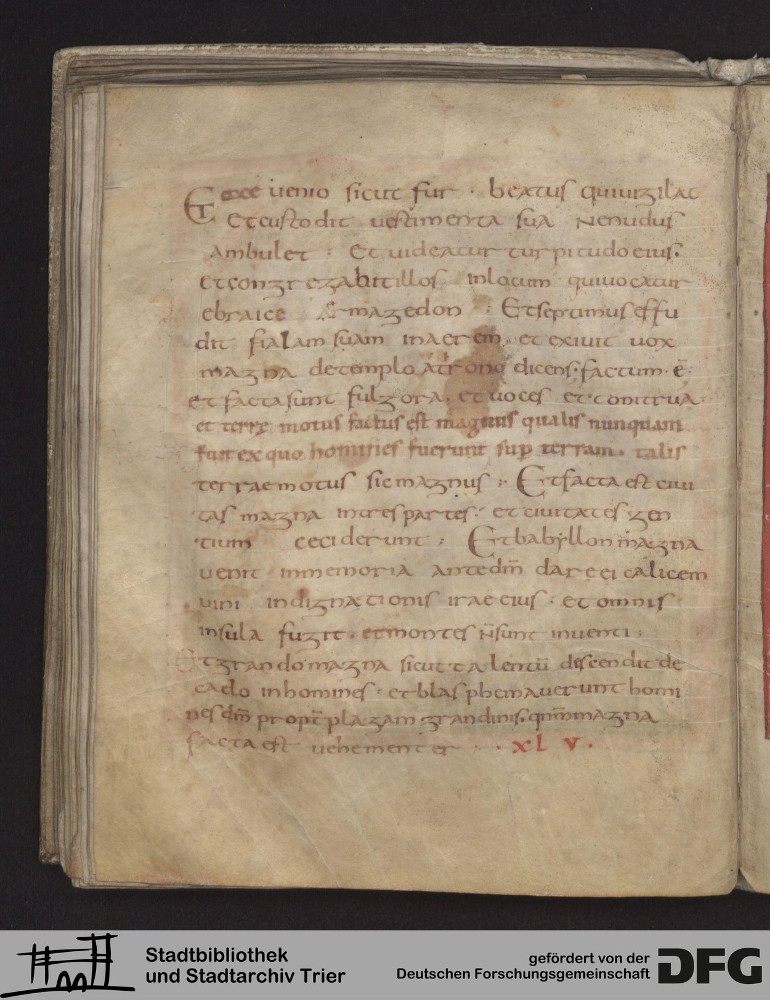 Et ecce uenio sicut fur · beatus qui uigilat
et custodit uestimenta sua Ne nudus
ambulet : Et uideatur turpitudo eius.
et congregabit illos in locum qui uocatur
ebraice Ermagedon : Et septimus effu
dit fialam suam in aerem et exiuit uox
magna de templo a trono dicens : factum · ē :
et facta sunt fulgora · et uoces et tonitrua ·
et terrę motus factus est magnus qualis nunquam
fuit ex quo homines fuerunt sup terram · talis
terrae motus sic magnus : Et facta est ciui
tas magna in tres partes : et ciuitates gen
tium ceciderunt : Et babyllon magna
uenit in memoria ante dm̄ dare ei calicem
uini indignationis irae eius · et omnis
insula fugit · et montes n̄ sunt inuenti :
Et grando magna sicut talentū discendit de
caelo in homines · et blasphemauerunt homi
nes dm̄ propt̄ plagam grandinis · qnm̄ magna
facta est uehementer · · XL V ·
Stadtbibliothek
und Stadtarchiv Trier
gefördert von der
Deutschen Forschungsgemeinschaft
DFG